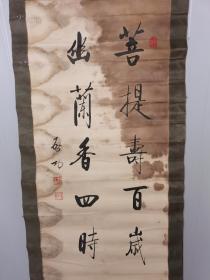 菩提壽百歲
幽蘭香四時
啟功